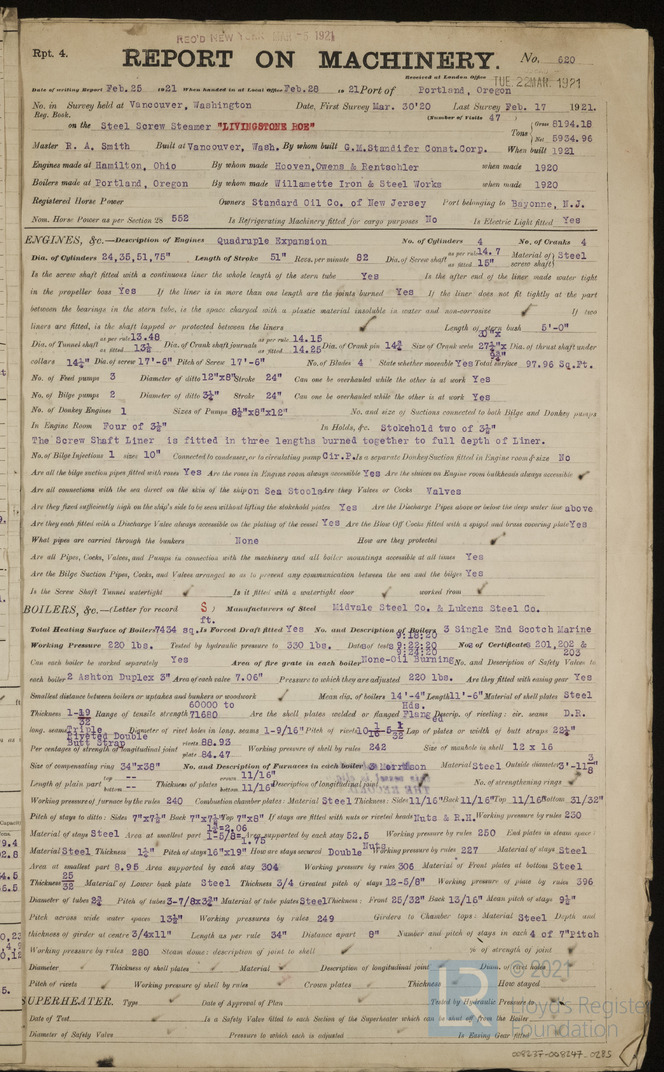 REC'D NEW YORK MAR -5 1921
Rpt. 4.
REPORT ON MACHINERY. No. 620
Received at London Office TUE 22 MAR. 1921
Date of writing Report Feb.25 1921 When handed in at Local Office Feb.28 1921 Port of Portland, Oregon
No. in Survey held at Vancouver, Washington Date, First Survey Mar. 30'20 Last Survey Feb. 17 1921.
Reg. Book. (Number of Visits 47 )
on the Steel Screw Steamer "LIVINGSTONE ROE" Tons { Gross 8194.18 Net 5934.96
Master R. A. Smith Built at Vancouver, Wash. By whom built G.M.Standifer Const.Corp. When built 1921
Engines made at Hamilton, Ohio By whom made Hooven,Owens & Rentschler when made 1920
Boilers made at Portland, Oregon By whom made Willamette Iron & Steel Works when made 1920
Registered Horse Power Owners Standard Oil Co. of New Jersey Port belonging to Bayonne, N.J.
Nom. Horse Power as per Section 28 552 Is Refrigerating Machinery fitted for cargo purposes No Is Electric Light fitted Yes
ENGINES, &c.—Description of Engines Quadruple Expansion No. of Cylinders 4 No. of Cranks 4
Dia. of Cylinders 24,35,51,75" Length of Stroke 51" Revs. per minute 82 Dia. of Screw shaft as per rule 14.7 as fitted 15" Material of screw shaft } Steel
Is the screw shaft fitted with a continuous liner the whole length of the stern tube Yes Is the after end of the liner made water tight
in the propeller boss Yes If the liner is in more than one length are the joints burned Yes If the liner does not fit tightly at the part
between the bearings in the stern tube, is the space charged with a plastic material insoluble in water and non-corrosive If two
liners are fitted, is the shaft lapped or protected between the liners Length of stern bush 5'-0"
Dia. of Tunnel shaft as per rule 13.48 as fitted 13½ Dia. of Crank shaft journals as per rule 14.15 as fitted 14.25 Dia. of Crank pin 14¾ Size of Crank webs 30"x 27½"x 9¾" Dia. of thrust shaft under
collars 14¼" Dia. of screw 17'-6" Pitch of Screw 17'-6" No. of Blades 4 State whether moveable Yes Total surface 97.96 Sq.Ft.
No. of Feed pumps 3 Diameter of ditto 12"x8" Stroke 24" Can one be overhauled while the other is at work Yes
No. of Bilge pumps 2 Diameter of ditto 3½" Stroke 24" Can one be overhauled while the other is at work Yes
No. of Donkey Engines 1 Sizes of Pumps 8½"x8"x12" No. and size of Suctions connected to both Bilge and Donkey pumps
In Engine Room Four of 3½" In Holds, &c. Stokehold two of 3½"
The Screw Shaft Liner is fitted in three lengths burned together to full depth of Liner.
No. of Bilge Injections 1 sizes 10" Connected to condenser, or to circulating pump Cir.P. Is a separate Donkey Suction fitted in Engine room & size No
Are all the bilge suction pipes fitted with roses Yes Are the roses in Engine room always accessible Yes Are the sluices on Engine room bulkheads always accessible
Are all connections with the sea direct on the skin of the ship on Sea Stools Are they Valves or Cocks Valves
Are they fixed sufficiently high on the ship's side to be seen without lifting the stokehold plates Yes Are the Discharge Pipes above or below the deep water line above
Are they each fitted with a Discharge Valve always accessible on the plating of the vessel Yes Are the Blow Off Cocks fitted with a spigot and brass covering plate Yes
What pipes are carried through the bunkers None How are they protected
Are all Pipes, Cocks, Valves, and Pumps in connection with the machinery and all boiler mountings accessible at all times Yes
Are the Bilge Suction Pipes, Cocks, and Valves arranged so as to prevent any communication between the sea and the bilges Yes
Is the Screw Shaft Tunnel watertight Is it fitted with a watertight door worked from
BOILERS, &c.—(Letter for record S ) Manufacturers of Steel Midvale Steel Co. & Lukens Steel Co.
Total Heating Surface of Boilers 7434 sq.ft. Is Forced Draft fitted Yes No. and Description of Boilers 3 Single End Scotch Marine
Working Pressure 220 lbs. Tested by hydraulic pressure to 330 lbs. Date of tests 9:18:20 9:22:20 9:24:20 No. of Certificates 201,202 & 203
Can each boiler be worked separately Yes Area of fire grate in each boiler None-Oil Burning No. and Description of Safety Valves to
each boiler 2 Ashton Duplex 3" Area of each valve 7.06" Pressure to which they are adjusted 220 lbs. Are they fitted with easing gear Yes
Smallest distance between boilers or uptakes and bunkers or woodwork Mean dia. of boilers 14'-4" Length 11'-6" Material of shell plates Steel
Thickness 1-19/32 Range of tensile strength 60000 to 71680 Are the shell plates welded or flanged Hds. Flanged Descrip. of riveting: cir. seams D.R.
long. seams Triple Riveted Double Butt Strap Diameter of rivet holes in long. seams 1-9/16" Pitch of rivets Lap of plates or width of butt straps 22½"
Per centages of strength of longitudinal joint rivets 88.93 plate 84.47 Working pressure of shell by rules 242 Size of manhole in shell 12 x 16
Size of compensating ring 34"x38" No. and Description of Furnaces in each boiler 3 Morrison Material Steel Outside diameter 3'-11⅜"
Length of plain part top -- bottom -- Thickness of plates crown 11/16" bottom 11/16" Description of longitudinal joint No. of strengthening rings
Working pressure of furnace by the rules 240 Combustion chamber plates: Material Steel Thickness: Sides 11/16" Back 11/16" Top 11/16" Bottom 31/32"
Pitch of stays to ditto: Sides 7"x7½" Back 7"x7½" Top 7"x8" If stays are fitted with nuts or riveted heads Nuts & R.H. Working pressure by rules 230
Material of stays Steel Area at smallest part Area supported by each stay 52.5 Working pressure by rules 250 End plates in steam space:
Material Steel Thickness 1½" Pitch of stays 16"x19" How are stays secured Double Nuts Working pressure by rules 227 Material of stays Steel
Area at smallest part 8.95 Area supported by each stay 304 Working pressure by rules 306 Material of Front plates at bottom Steel
Thickness 25/32 Material of Lower back plate Steel Thickness 3/4 Greatest pitch of stays 12-5/8" Working pressure of plate by rules 396
Diameter of tubes 2¾ Pitch of tubes 3-7/8x3¾" Material of tube plates Steel Thickness: Front 25/32" Back 13/16" Mean pitch of stays 9½"
Pitch across wide water spaces 13½" Working pressures by rules 249 Girders to Chamber tops: Material Steel Depth and
thickness of girder at centre 3/4x11" Length as per rule 34" Distance apart 8" Number and pitch of stays in each 4 of 7"Pitch
Working pressure by rules 280 Steam dome: description of joint to shell % of strength of joint
Diameter Thickness of shell plates Material Description of longitudinal joint Diam. of rivet holes
Pitch of rivets Working pressure of shell by rules Crown plates Thickness How stayed
SUPERHEATER. Type Date of Approval of Plan Tested by Hydraulic Pressure to
Date of Test Is a Safety Valve fitted to each Section of the Superheater which can be shut off from the Boiler
Diameter of Safety Valve Pressure to which each is adjusted Is Easing Gear fitted
© 2021
Lloyd's Register
Foundation
008237-008247-0285